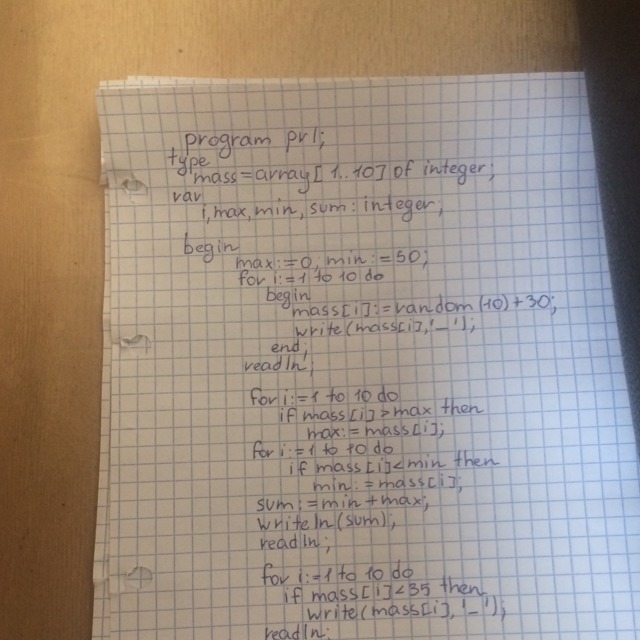 program pr1;
type
mass=array[1..10] of integer;
var
i,max,min,sum:integer;
begin
max:=0; min:=50;
for i:=1 to 10 do
begin
mass[i]:=random(10)+30;
write(mass[i],'_');
end;
readln;
for i:=1 to 10 do
if mass[i]>max then
max:=mass[i];
for i:=1 to 10 do
if mass[i]<min then
min:=mass[i];
sum:=min+max;
writeln(sum);
readln;
for i:=1 to 10 do
if mass[i]<35 then
write(mass[i],'_');
readln;